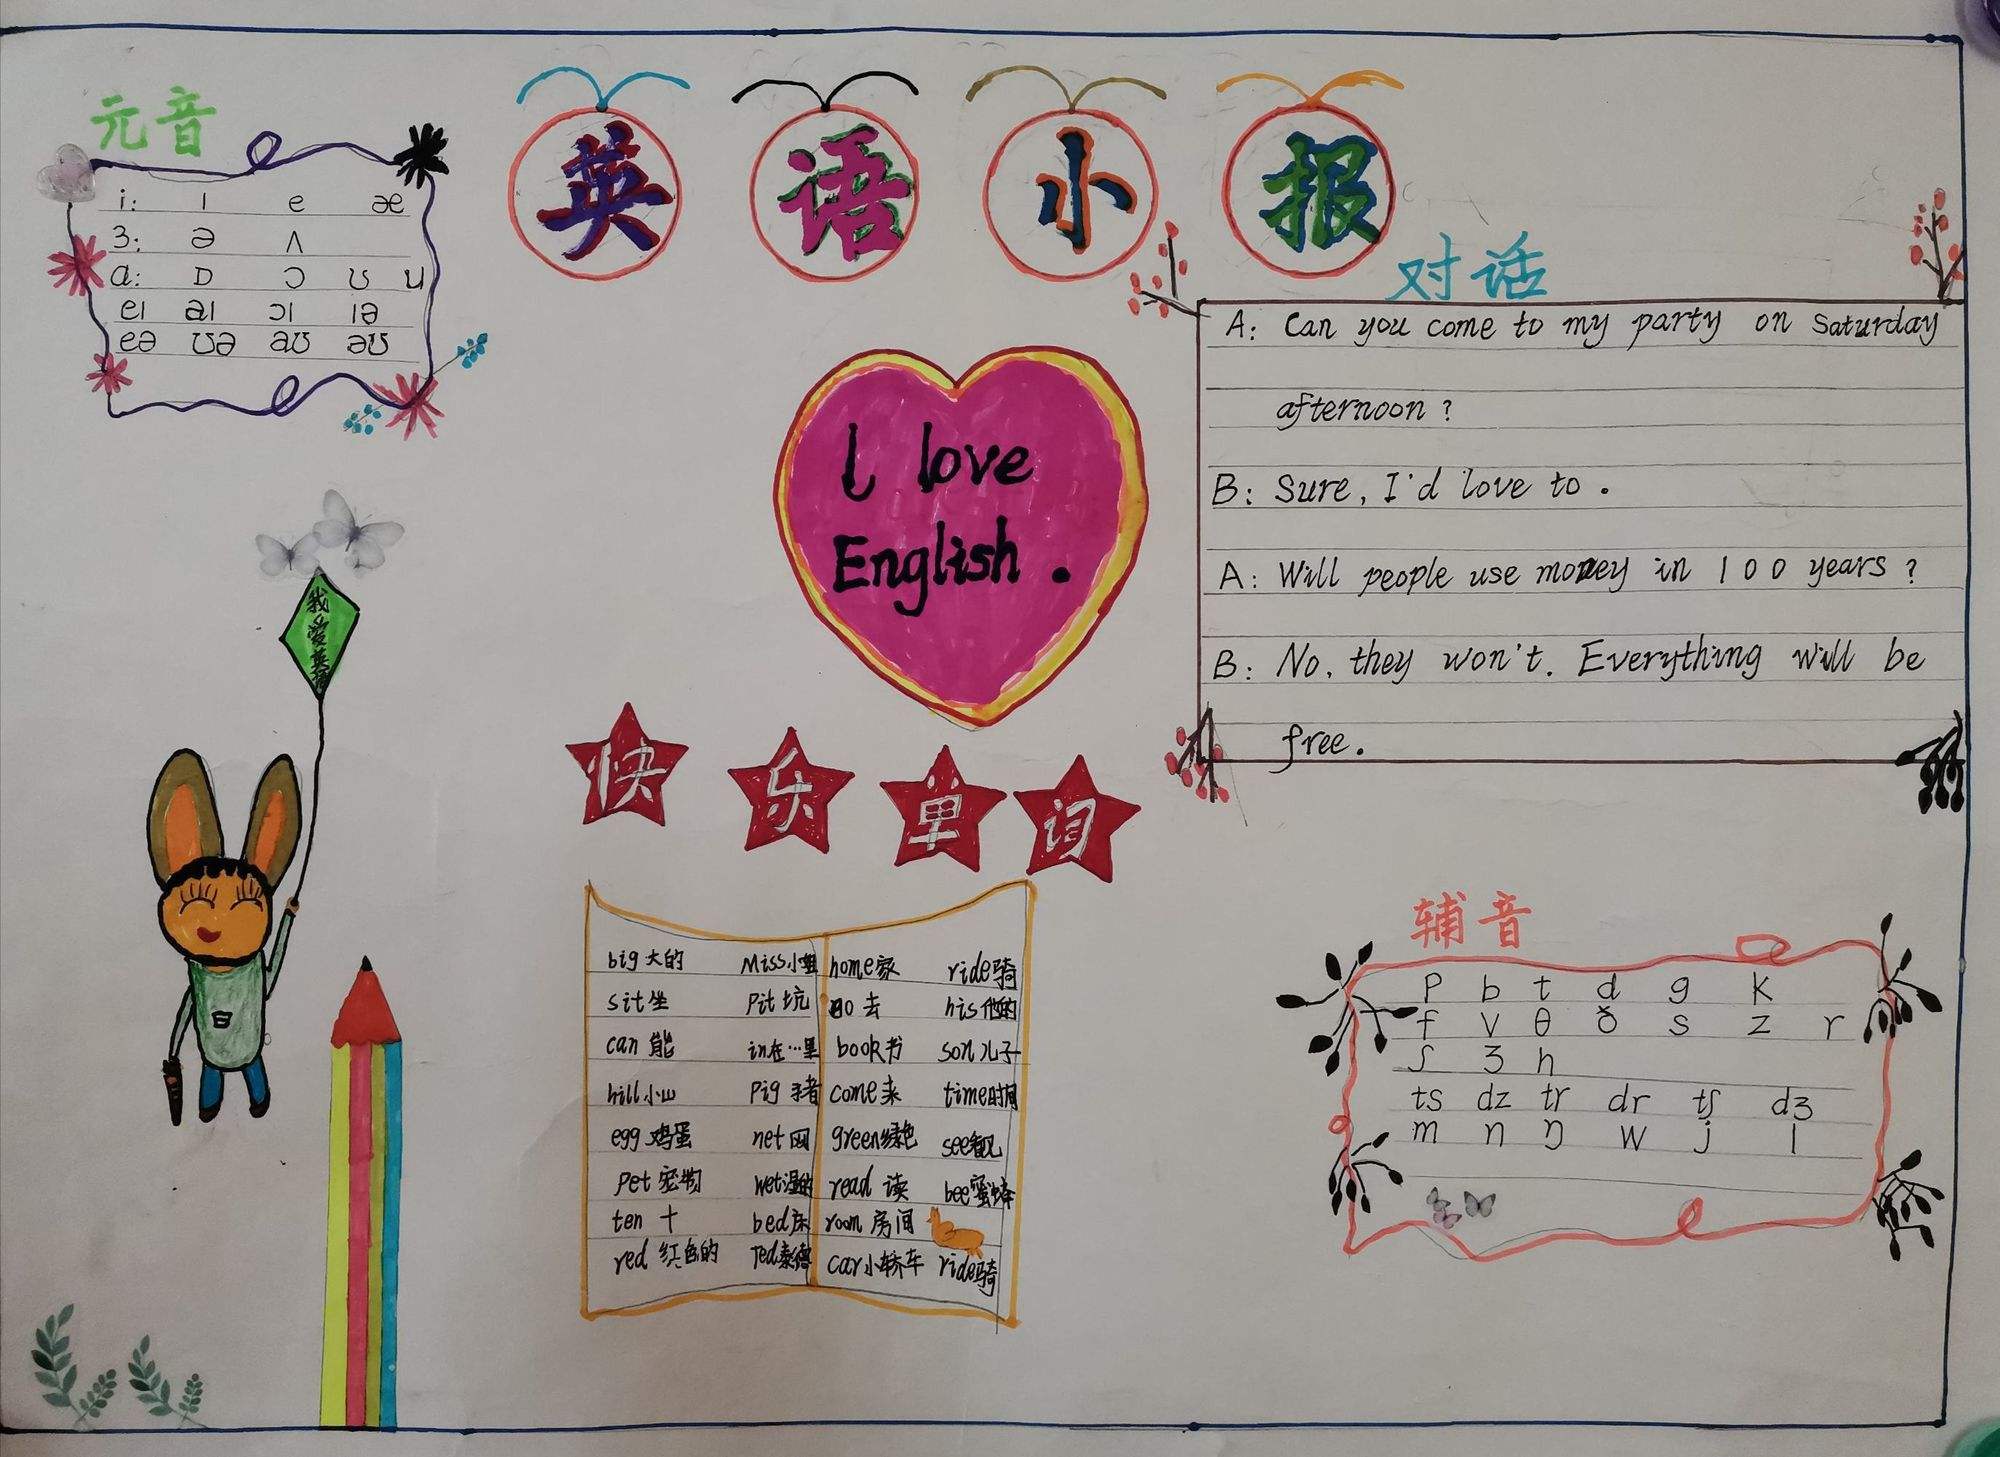 英语小报
元音
i: ɪ e æ
ɜ: ə ʌ
ɑ: ɒ ɔ ʊ u
eɪ aɪ ɔɪ ɪə
eə ʊə aʊ əʊ
对话
A: Can you come to my party on Saturday
afternoon?
B: Sure, I'd love to.
A: Will people use money in 100 years?
B: No, they won't. Everything will be
free.
I love
English.
我爱英语
快乐单词
big 大的 Miss 小姐 home 家 ride 骑
sit 坐 pit 坑 go 去 his 他的
can 能 in 在…里 book 书 son 儿子
hill 小山 pig 猪 come 来 time 时间
egg 鸡蛋 net 网 green 绿色 see 看见
pet 宠物 wet 湿的 read 读 bee 蜜蜂
ten 十 bed 床 room 房间
red 红色的 Ted 泰德 car 小轿车 ride 骑
辅音
p b t d g k
f v θ ð s z r
ʃ ʒ h
ts dz tr dr tʃ dʒ
m n ŋ w j l